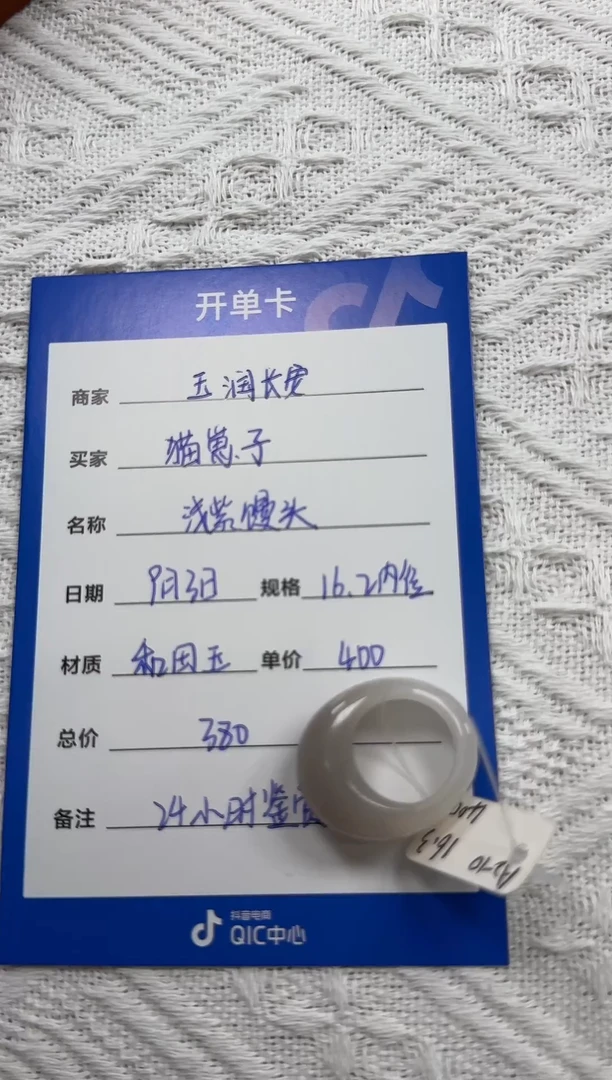 开单卡
商家 玉润长安
买家 猫崽子
名称 浅紫馒头
日期 9月3日 规格 16.2内径
材质 和田玉 单价 400
总价 380
备注 24小时鉴定
A2-10
16.3
400
抖音电商
QIC中心